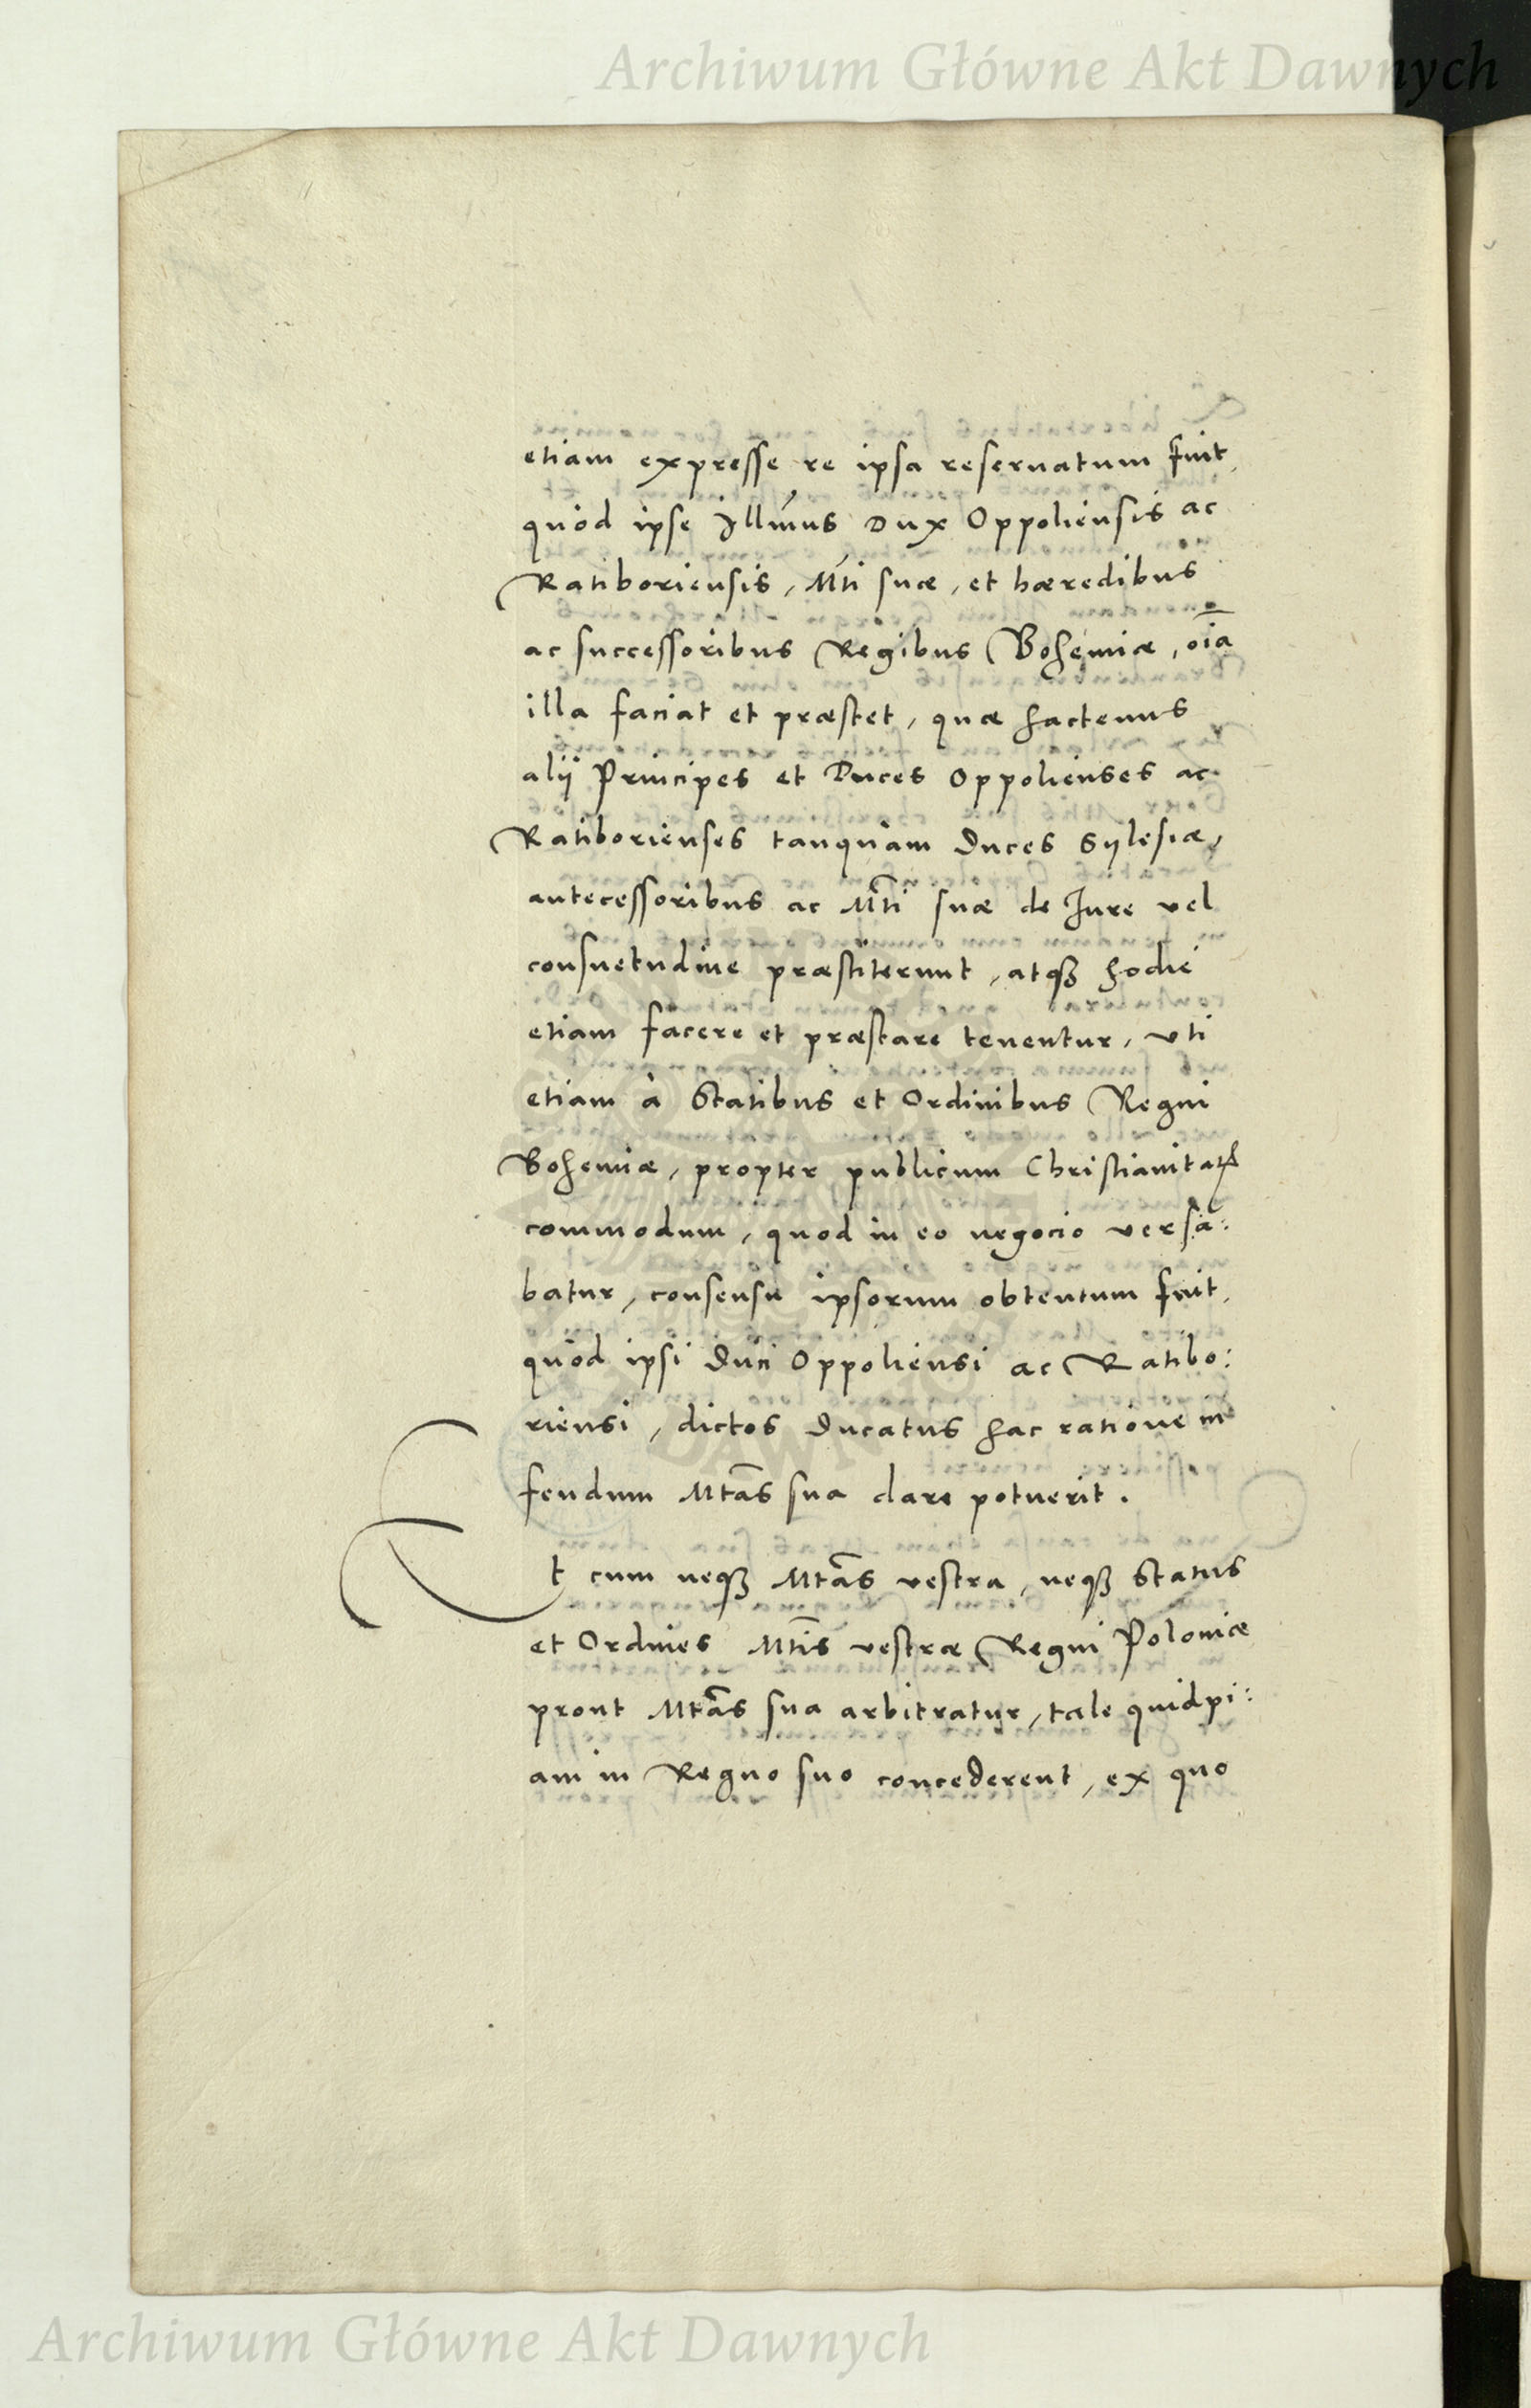 Archiwum Główne Akt Dawnych
etiam expresse re ipsa reseruatum fuit,
quòd ipse Illmus Dux Oppoliensis ac
Ratiboriensis, Mti suæ, et hæredibus
ac successoribus Regibus Bohemiæ, oia
illa faciat et præstet, quæ hactenus
alij Principes et Duces Oppolienses ac
Ratiborienses tanquàm Duces Sylesiæ,
antecessoribus ac Mti suæ de Jure vel
consuetudine præstiterunt, atqȝ hodie
etiam facere et præstare tenentur, vti
etiam à Statibus et Ordinibus Regni
Bohemiæ, propter publicum Christianitatis
commodum, quod in eo negocio versa:
batur, consensu ipsorum obtentum fuit,
quòd ipsi Duci Oppoliensi ac Ratibo:
riensi, dictos Ducatus hac ratione in
feudum Mtas sua dare potuerit.
Et cum neqȝ Mtas vestra, neqȝ Status
et Ordines Mtis vestræ Regni Poloniæ
prout Mtas sua arbitratur, tale quidpi:
am in Regno suo concederent, ex quo
Archiwum Główne Akt Dawnych